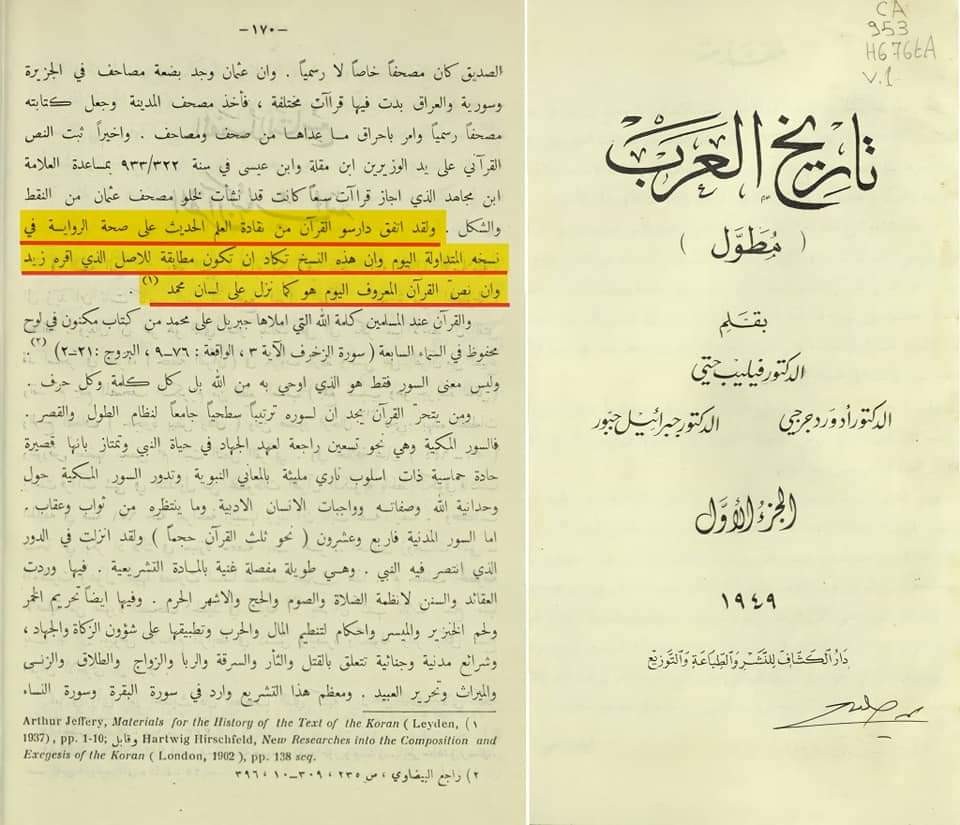 -١٧٠-
الصديق كان مصحفاً خاصاً لا رسمياً . وان عثمان وجد بضعة مصاحف في الجزيرة
وسورية والعراق بدت فيها قراآت مختلفة ، فأخذ مصحف المدينة وجعل كتابته
مصحفاً رسمياً وامر باحراق مـا عداهـا من صحف ومصاحف . واخيراً ثبت النص
القرآني على يد الوزيرين ابن مقلة وابن عيسى في سنة ٩٣٣/٣٢٢ بمساعدة العلامة
ابن مجاهد الذي اجاز قراآت سبعاً كانت قد نشأت لخلو مصحف عثمان من النقط
والشكل . ولقد اتفق دارسو القرآن من نقادة العلم الحديث على صحة الروايـة في
نسخه المتداولة اليوم وان هذه النسخ تكاد ان تكون مطابقة للاصل الذي اقره زيد
وان نصّ القرآن المعروف اليوم هو كما نزل على لسان محمد (١) .
والقرآن عند المسلمين كلمة الله التي املاها جبريل على محمد من كتاب مكنون في لوح
محفوظ في السماء السابعة ( سورة الزخرف الآية ٣ ، الواقعة : ٧٦-٩ ، البروج : ٢١-٢ ) (٢) .
وليس معنى السور فقط هو الذي اوحي به من الله بل كل كلمة وكل حرف .
ومن يتحرّ القرآن يجد ان لسوره ترتيباً سطحياً جامعاً لنظام الطول والقصر .
فالسور المكية وهي نحو تسعين راجعة لعهد الجهاد في حياة النبي وتمتاز بانها قصيرة
حادة حماسية ذات اسلوب ناري مليئة بالمعاني النبوية وتدور السور المكية حول
وحدانية الله وصفاتـه وواجبات الانسان الادبية وما ينتظره من ثواب وعقاب .
اما السور المدنية فاربع وعشرون ( نحو ثلث القرآن حجماً ) ولقد انزلت في الدور
الذي انتصر فيه النبي . وهـي طويلة مفصلة غنية بالمـادة التشريعية . فيها وردت
العقائد والسنن لانظمة الصلاة والصوم والحج والاشهر الحرم . وفيها ايضاً تحريم الخمر
ولحم الخنزير والميسر واحكام لتنظيم المال والحرب وتطبيقها على شؤون الزكاة والجهاد ،
وشرائع مدنية وجنائية تتعلق بالقتل والثأر والسرقة والربا والزواج والطلاق والزنـى
والميراث وتحرير العبيد . ومعظم هذا التشريع وارد في سورة البقرة وسورة النساء
Arthur Jeffery, Materials for the History of the Text of the Koran ( Leyden, (١
1937) , pp. 1-10; وقابل Hartwig Hirschfeld, New Researches into the Composition and
Exegesis of the Koran ( London, 1902 ), pp. 138 seq.
٢) راجع البيضاوي ، ص ٢٣٥ ، ٣٠٩-١٠ ، ٣٩٦ .
CA
953
H676tA
V.1
تاريخ العرب
( مُطَوَّل )
بقلم
الدكتور فيليب حتي
الدكتور أدورد جرجي الدكتور جبرائيل جبور
الجزء الأوّل
١٩٤٩
دَارُ الكشّاف لِلنَّشْرِ وَالطِّبَاعَةِ وَالتَّوْزِيْع